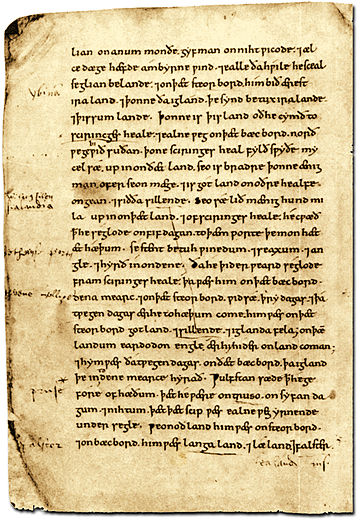 lian on anum monðe. gyf man on niht wicode. ⁊ æl
ce dæge hæfde ambyrne wind. ⁊ ealle ða hwile he sceal
seglian be lande. ⁊ on þæt steorbord him bið ærest
iraland. ⁊ þonne ða igland þe synd betux iralande
⁊ þissum lande. Þonne is þis land oð he cymð to
scirincges heale. ⁊ ealne weg on þæt bæcbord norð
weg wið suðan þone sciringes heal fylð swyðe my
cel sæ up in on ðæt land. seo is bradre þonne ænig
man ofer seon mæge. ⁊ is gotland on oðre healfe
ongean. ⁊ siððan sillende. seo sæ lið mænig hund mi
la up in on þæt land. ⁊ of sciringes heale he cwæð þæt
he seglode on fif dagan. to þæm porte þe mon hæt
æt hæþum. se stent betuh winedum. ⁊ seaxum. ⁊ an
gle. ⁊ hyrð in on dene. Ða he þiderweard seglode
fram sciringes heale. þa wæs him on þæt bæcbord.
dena mearc. ⁊ on þæt steorbord. widsæ. þry dagas. ⁊ þa
twegen dagas ær he to hæþum come. him wæs on þæt
steorbord gotland. ⁊ sillende. ⁊ iglanda fela. on þæm
landum eardodon engle. ær hi hider on land coman.
⁊ hym wæs ða twegen dagas. on ðæt bæcbord. þa igland
þe in denemearce hyrað. Wulfstan sæde þæt he ge
fore of hæðum. þæt he wære on truso. on syfan da
gum. ⁊ nihtum. þæt þæt scip wæs ealne weg yrnende
under segle. weonoðland him wæs on steorbord.
⁊ on bæcbord. him wæs langaland. ⁊ læland. ⁊ falster.